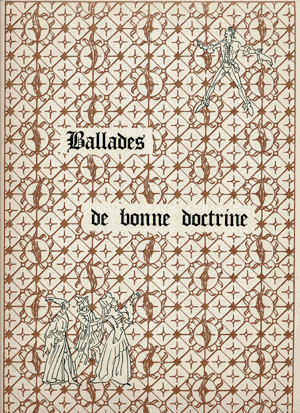 Ballades
de bonne doctrine